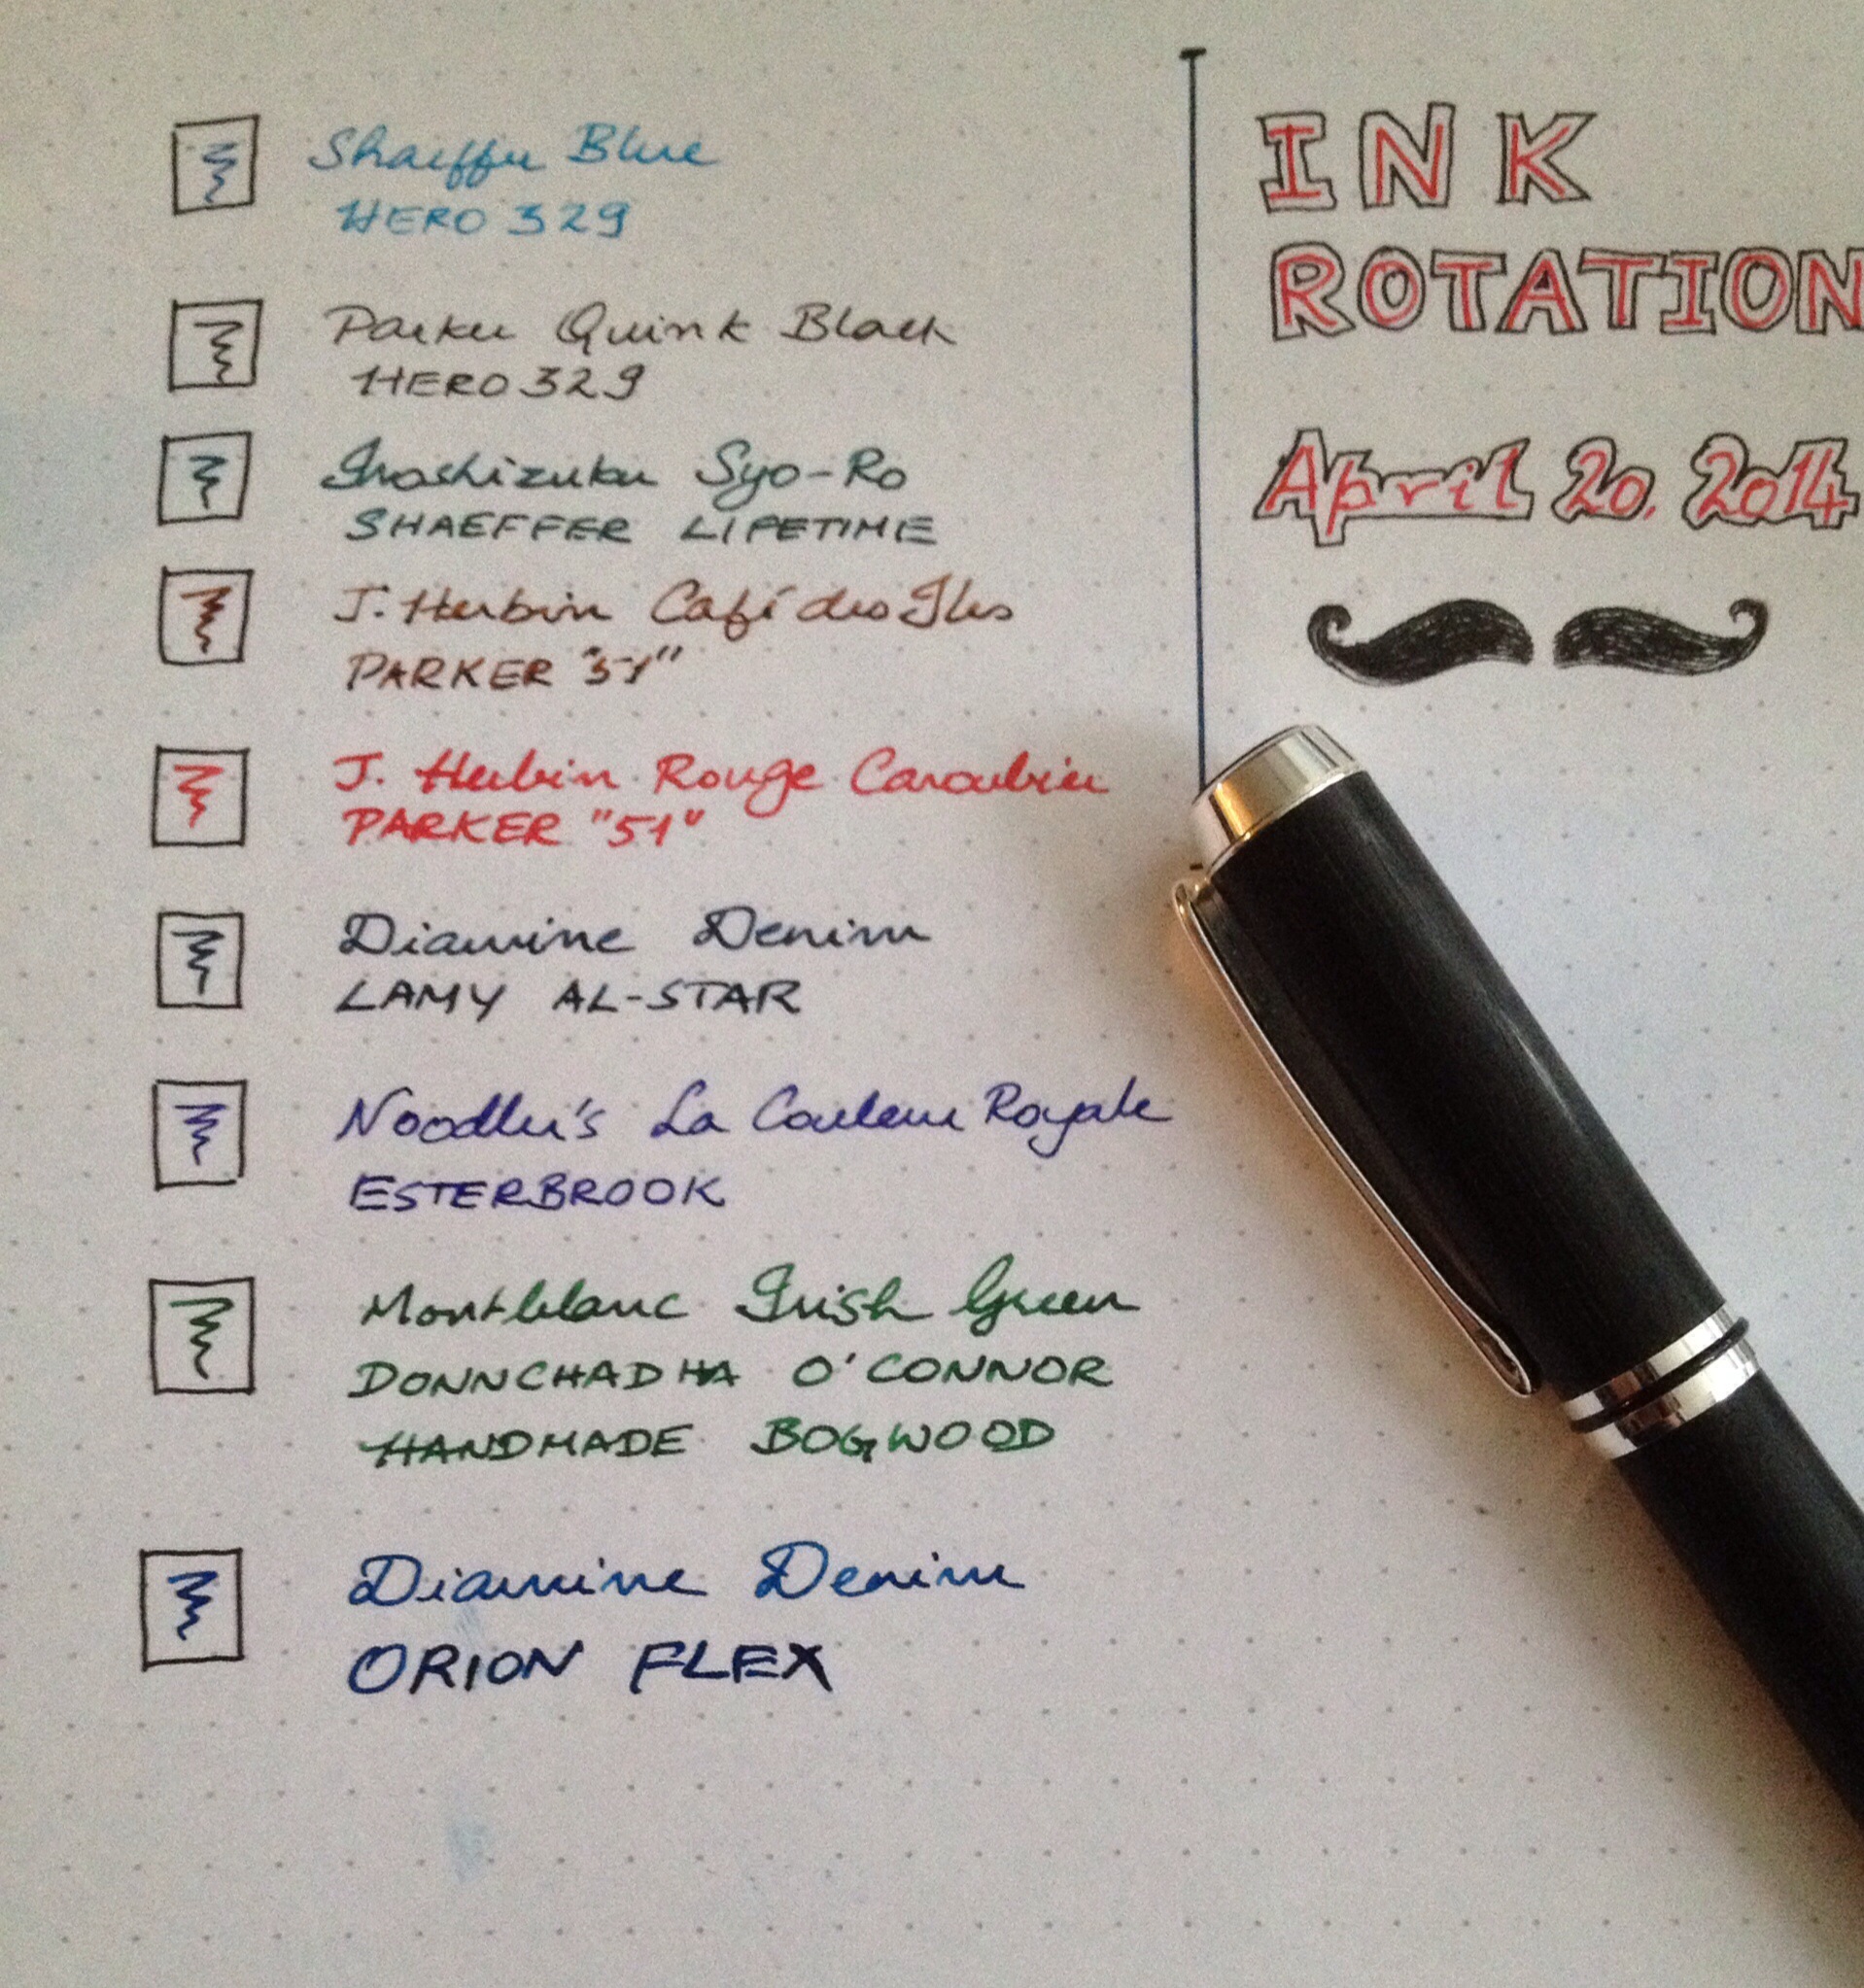 Shaeffer Blue
HERO 329
Parker Quink Black
HERO 329
Iroshizuku Syo-Ro
SHAEFFER LIFETIME
J. Herbin Café des Iles
PARKER "51"
J. Herbin Rouge Caroubier
PARKER "51"
Diamine Denim
LAMY AL-STAR
Noodler's La Couleur Royale
ESTERBROOK
Montblanc Irish Green
DONNCHADHA O'CONNOR
HANDMADE BOGWOOD
Diamine Denim
ORION FLEX
INK
ROTATION
April 20, 2014